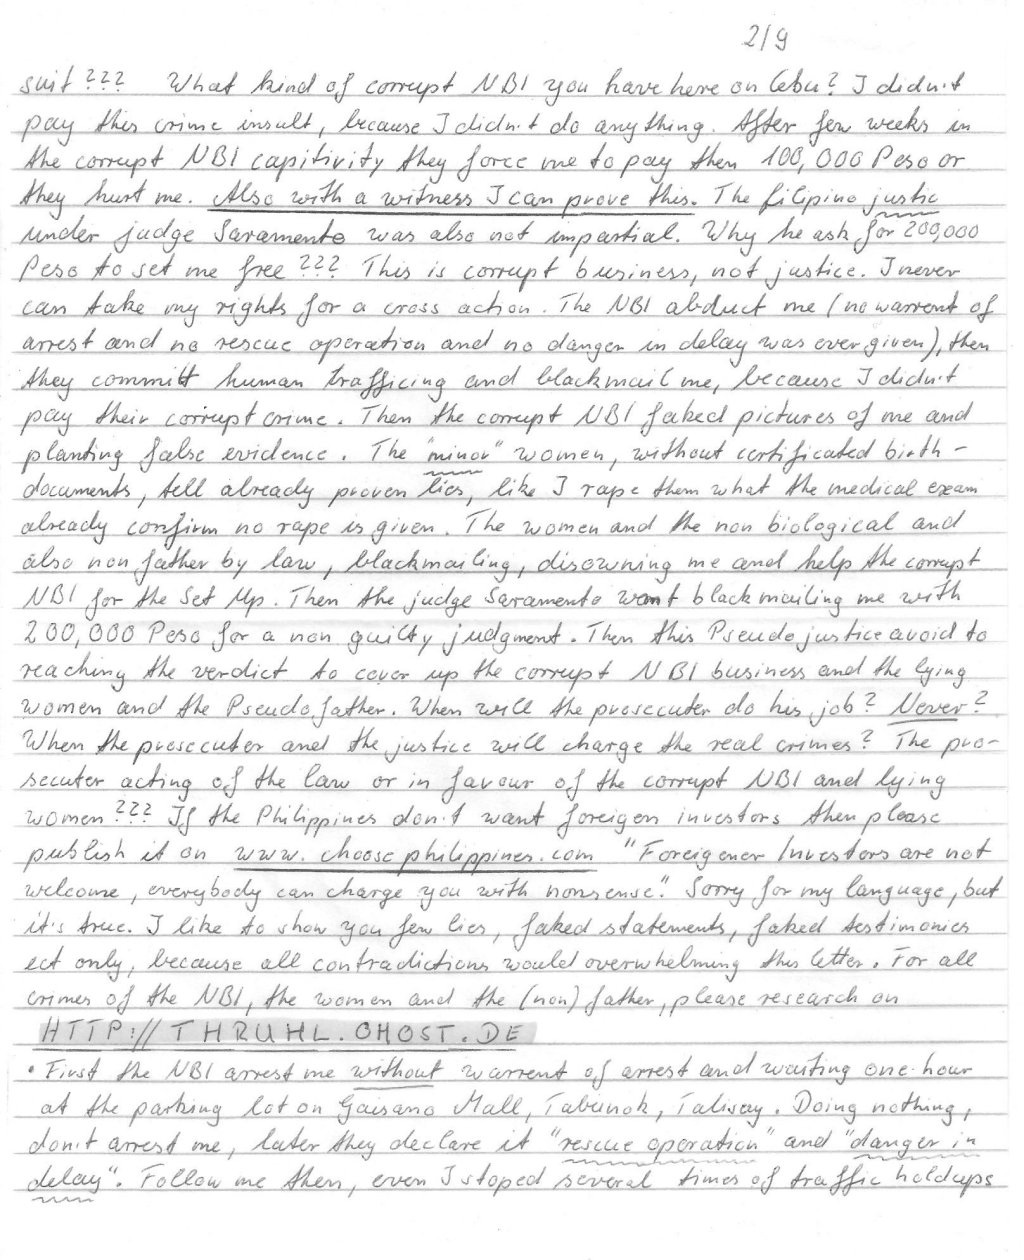 2/9
suit ??? What kind of corrupt NBI you have here on Cebu? I didn't
pay this crime insult, because I didn't do anything. After few weeks in
the corrupt NBI capitivity they force me to pay then 100,000 Peso or
they hurt me. Also with a witness I can prove this. The filipino justic
under judge Saramento was also not impartial. Why he ask for 200,000
Peso to set me free ??? This is corrupt business, not justice. I never
can take my rights for a cross action. The NBI abduct me (no warrent of
arrest and no rescue operation and no danger in delay was ever given), then
they committ human trafficing and blackmail me, because I didn't
pay their corrupt crime. Then the corrupt NBI faked pictures of me and
planting false evidence. The "minor" women, without certificated birth-
documents, tell already proven lies, like I rape them what the medical exam
already confirm no rape is given. The women and the non biological and
also non father by law, blackmailing, disowning me and help the corrupt
NBI for the Set Up. Then the judge Saramento want blackmailing me with
200,000 Peso for a non guilty judgment. Then this Pseudo justice avoid to
reaching the verdict to cover up the corrupt NBI business and the lying
women and the Pseudofather. When will the prosecuter do his job? Never?
When the prosecuter and the justice will charge the real crimes? The pro-
secuter acting of the law or in favour of the corrupt NBI and lying
women ??? If the Philippines don't want foreigen investors then please
publish it on www.choosephilippines.com "Foreigener Investors are not
welcome, everybody can charge you with nonsense". Sorry for my language, but
it's true. I like to show you few lies, faked statements, faked testimonies
ect only, because all contradictions would overwhelming this letter. For all
crimes of the NBI, the women and the (non) father, please research on
HTTP://THRUHL.OHOST.DE
• First the NBI arrest me without warrent of arrest and waiting one hour
at the parking lot on Gaisano Mall, Tabunok, Talisay. Doing nothing,
don't arrest me, later they declare it "rescue operation" and "danger in
delay". Follow me then, even I stoped several times of traffic holdups